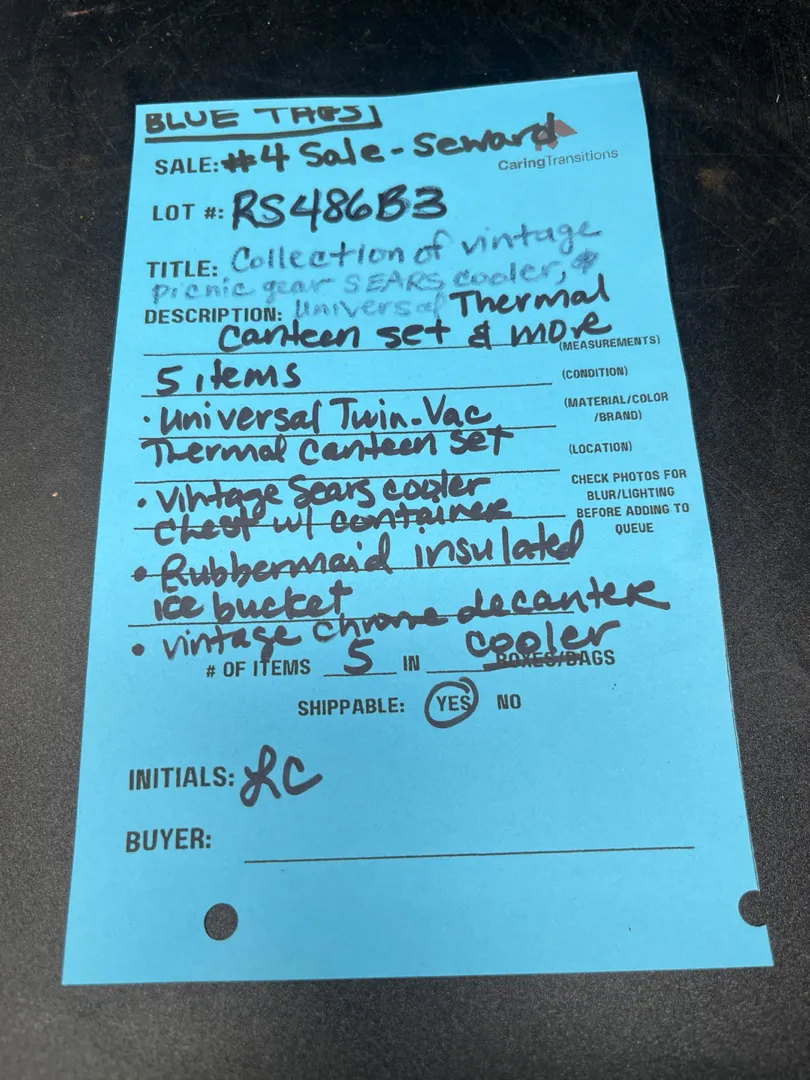 BLUE TAGS
SALE: #4 Sale - Seward
CaringTransitions
LOT #: RS486B3
TITLE: Collection of vintage
picnic gear SEARS cooler, &
DESCRIPTION: Universal Thermal
canteen set & more
(MEASUREMENTS)
5 items
(CONDITION)
• Universal Twin-Vac
(MATERIAL/COLOR
/BRAND)
Thermal Canteen set
(LOCATION)
• Vintage Sears cooler
CHECK PHOTOS FOR
BLUR/LIGHTING
chest w/ container
BEFORE ADDING TO
QUEUE
• Rubbermaid insulated
ice bucket
• vintage chrome decanter
cooler
# OF ITEMS 5 IN BOXES/BAGS
SHIPPABLE: YES NO
INITIALS: LC
BUYER: